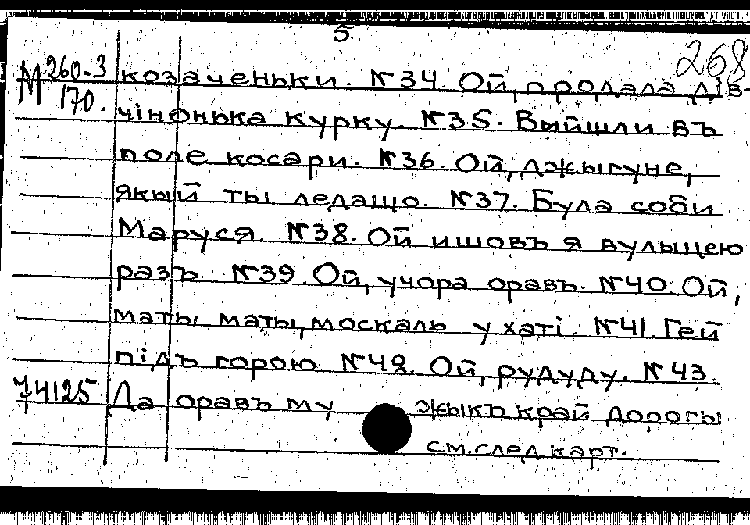 5
268
М 260-3 козаченьки. №34. Ой, продала дів-
170. чінонька курку. №35. Выйшли въ
поле косари. №36. Ой, джыгуне,
якый ты ледащо. №37. Була соби
Маруся. №38. Ой ишовъ я вулыцею
разъ. №39. Ой, учора оравъ. №40. Ой,
маты, маты, москаль у хаті. №41. Гей
підъ горою. №42. Ой, рудуду. №43.
74125 Да оравъ му жыкъ край дорогы
см. след. карт.